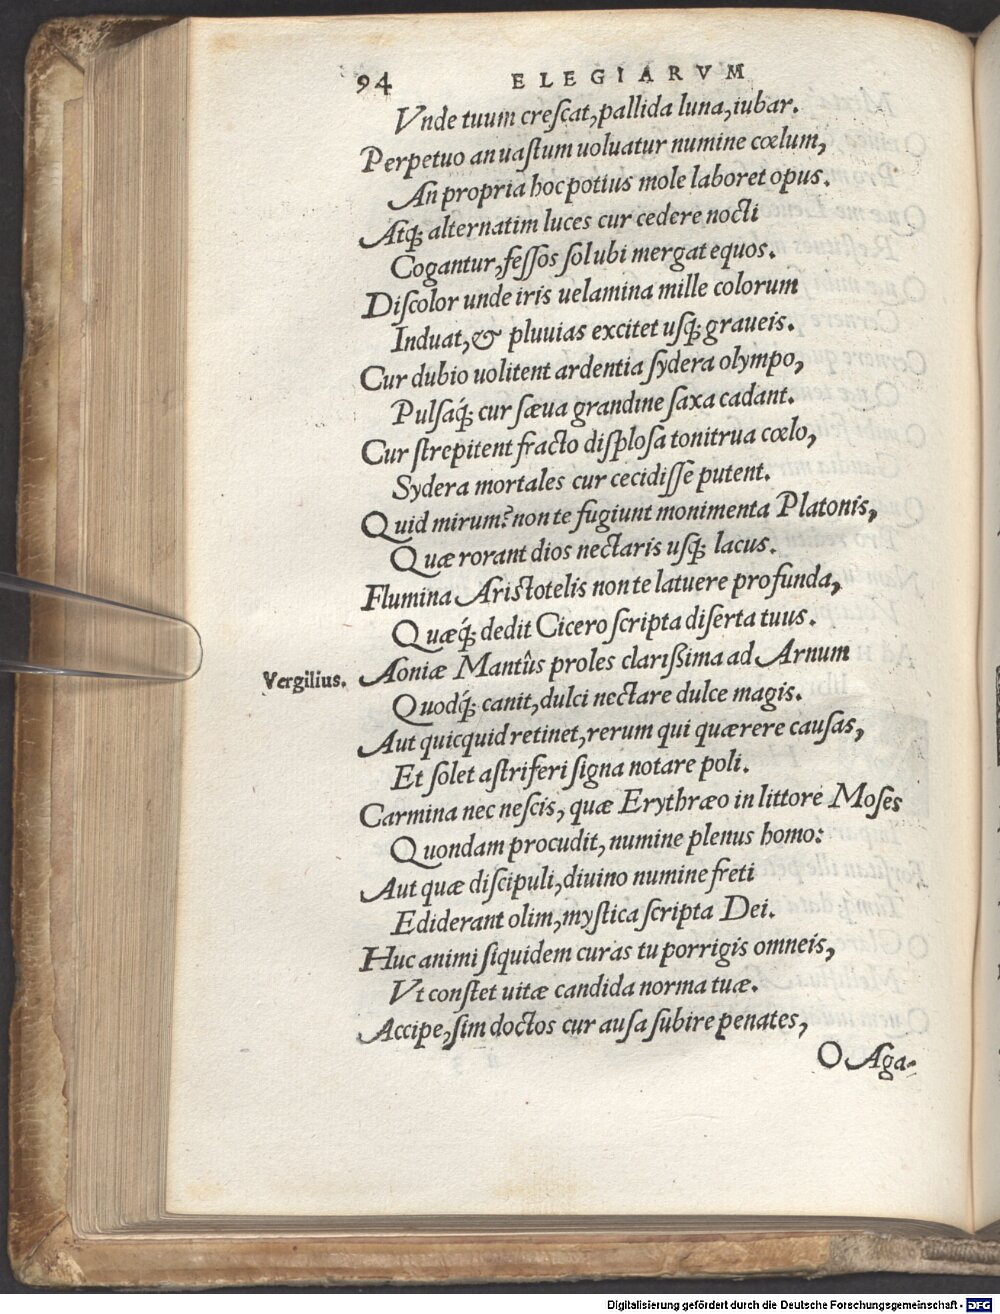 94 ELEGIARVM
Vnde tuum crescat, pallida luna, iubar.
Perpetuo an uastum uoluatur numine cœlum,
An propria hoc potius mole laboret opus.
Atq; alternatim luces cur cedere nocti
Cogantur, fessos sol ubi mergat equos.
Discolor unde iris uelamina mille colorum
Induat, & pluuias excitet usq; graueis.
Cur dubio uolitent ardentia sydera olympo,
Pulsaq́; cur sæua grandine saxa cadant.
Cur strepitent fracto displosa tonitrua cœlo,
Sydera mortales cur cecidisse putent.
Quid mirum? non te fugiunt monimenta Platonis,
Quæ rorant dios nectaris usq; lacus.
Flumina Aristotelis non te latuere profunda,
Quæq́; dedit Cicero scripta diserta tuus.
Vergilius. Aoniæ Mantûs proles clarißima ad Arnum
Quodq́; canit, dulci nectare dulce magis.
Aut quicquid retinet, rerum qui quærere causas,
Et solet astriferi signa notare poli.
Carmina nec nescis, quæ Erythræo in littore Moses
Quondam procudit, numine plenus homo:
Aut quæ discipuli, diuino numine freti
Ediderant olim, mystica scripta Dei.
Huc animi siquidem curas tu porrigis omneis,
Vt constet uitæ candida norma tuæ.
Accipe, sim doctos cur ausa subire penates,
O Aga-
Digitalisierung gefördert durch die Deutsche Forschungsgemeinschaft - DFG